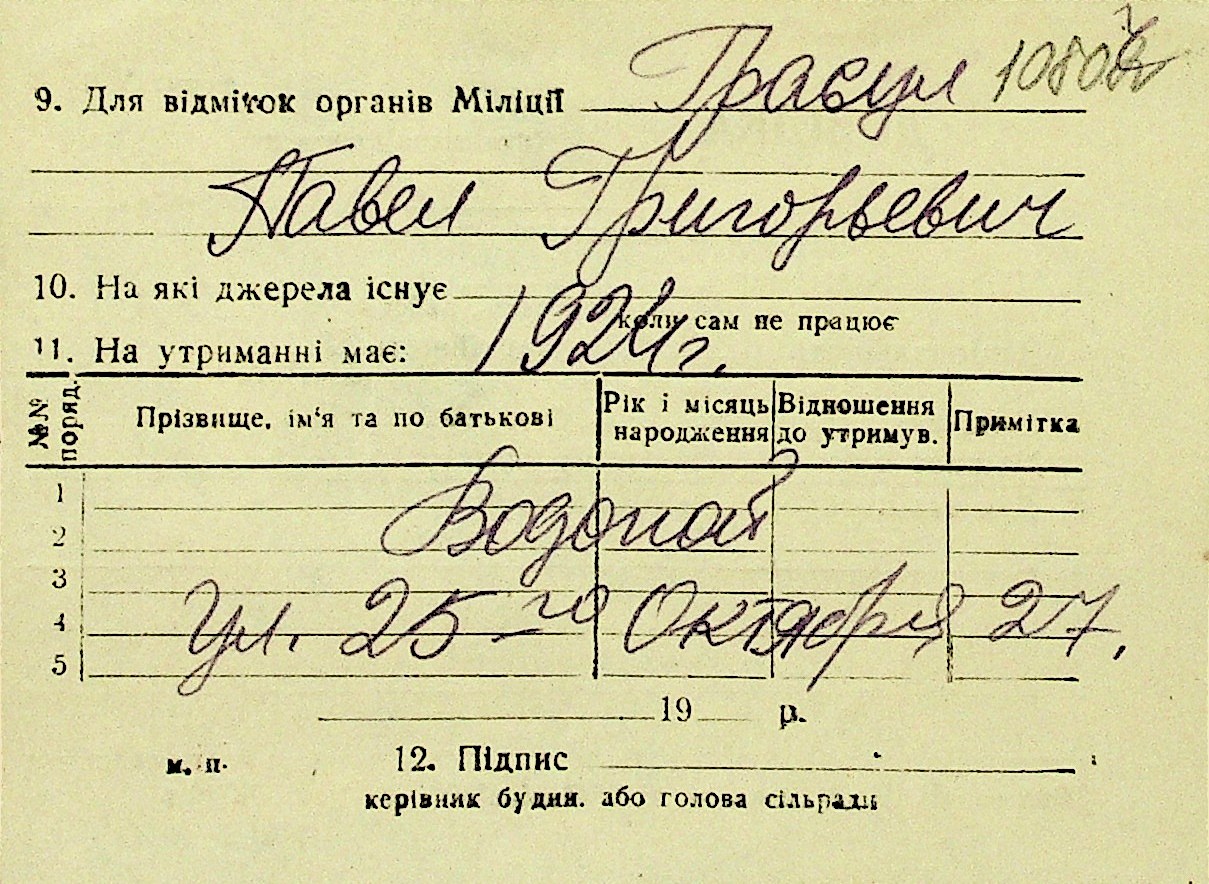 9. Для відміток органів Міліції Грасул
Павел Григорьевич
10. На які джерела існує
коли сам не працює
11. На утриманні має: 1924 г.
№№ поряд. Прізвище, ім‘я та по батькові Рік і місяць народження Відношення до утримув. Примітка
1
Водопой
2
3
Ул. 25-го Октября 27.
4
5
19 р.
м. п. 12. Підпис
керівник будин. або голова сільради